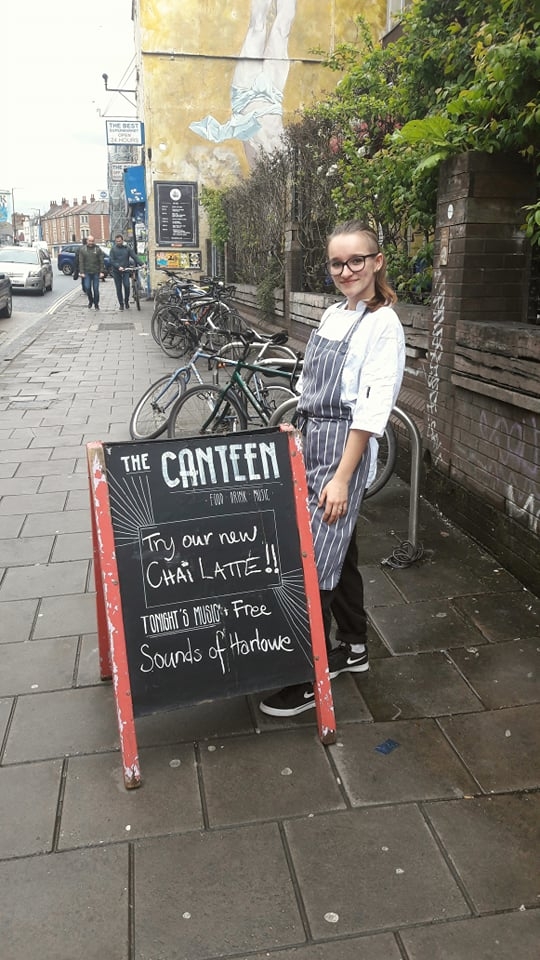 THE BEST
SUPERMARKET
OPEN
24 HOURS
THE CANTEEN
- FOOD · DRINK · MUSIC -
Try our new
CHAÏ LATTÉ!!
TONIGHT'S MUSIC: Free
Sounds of Harlowe